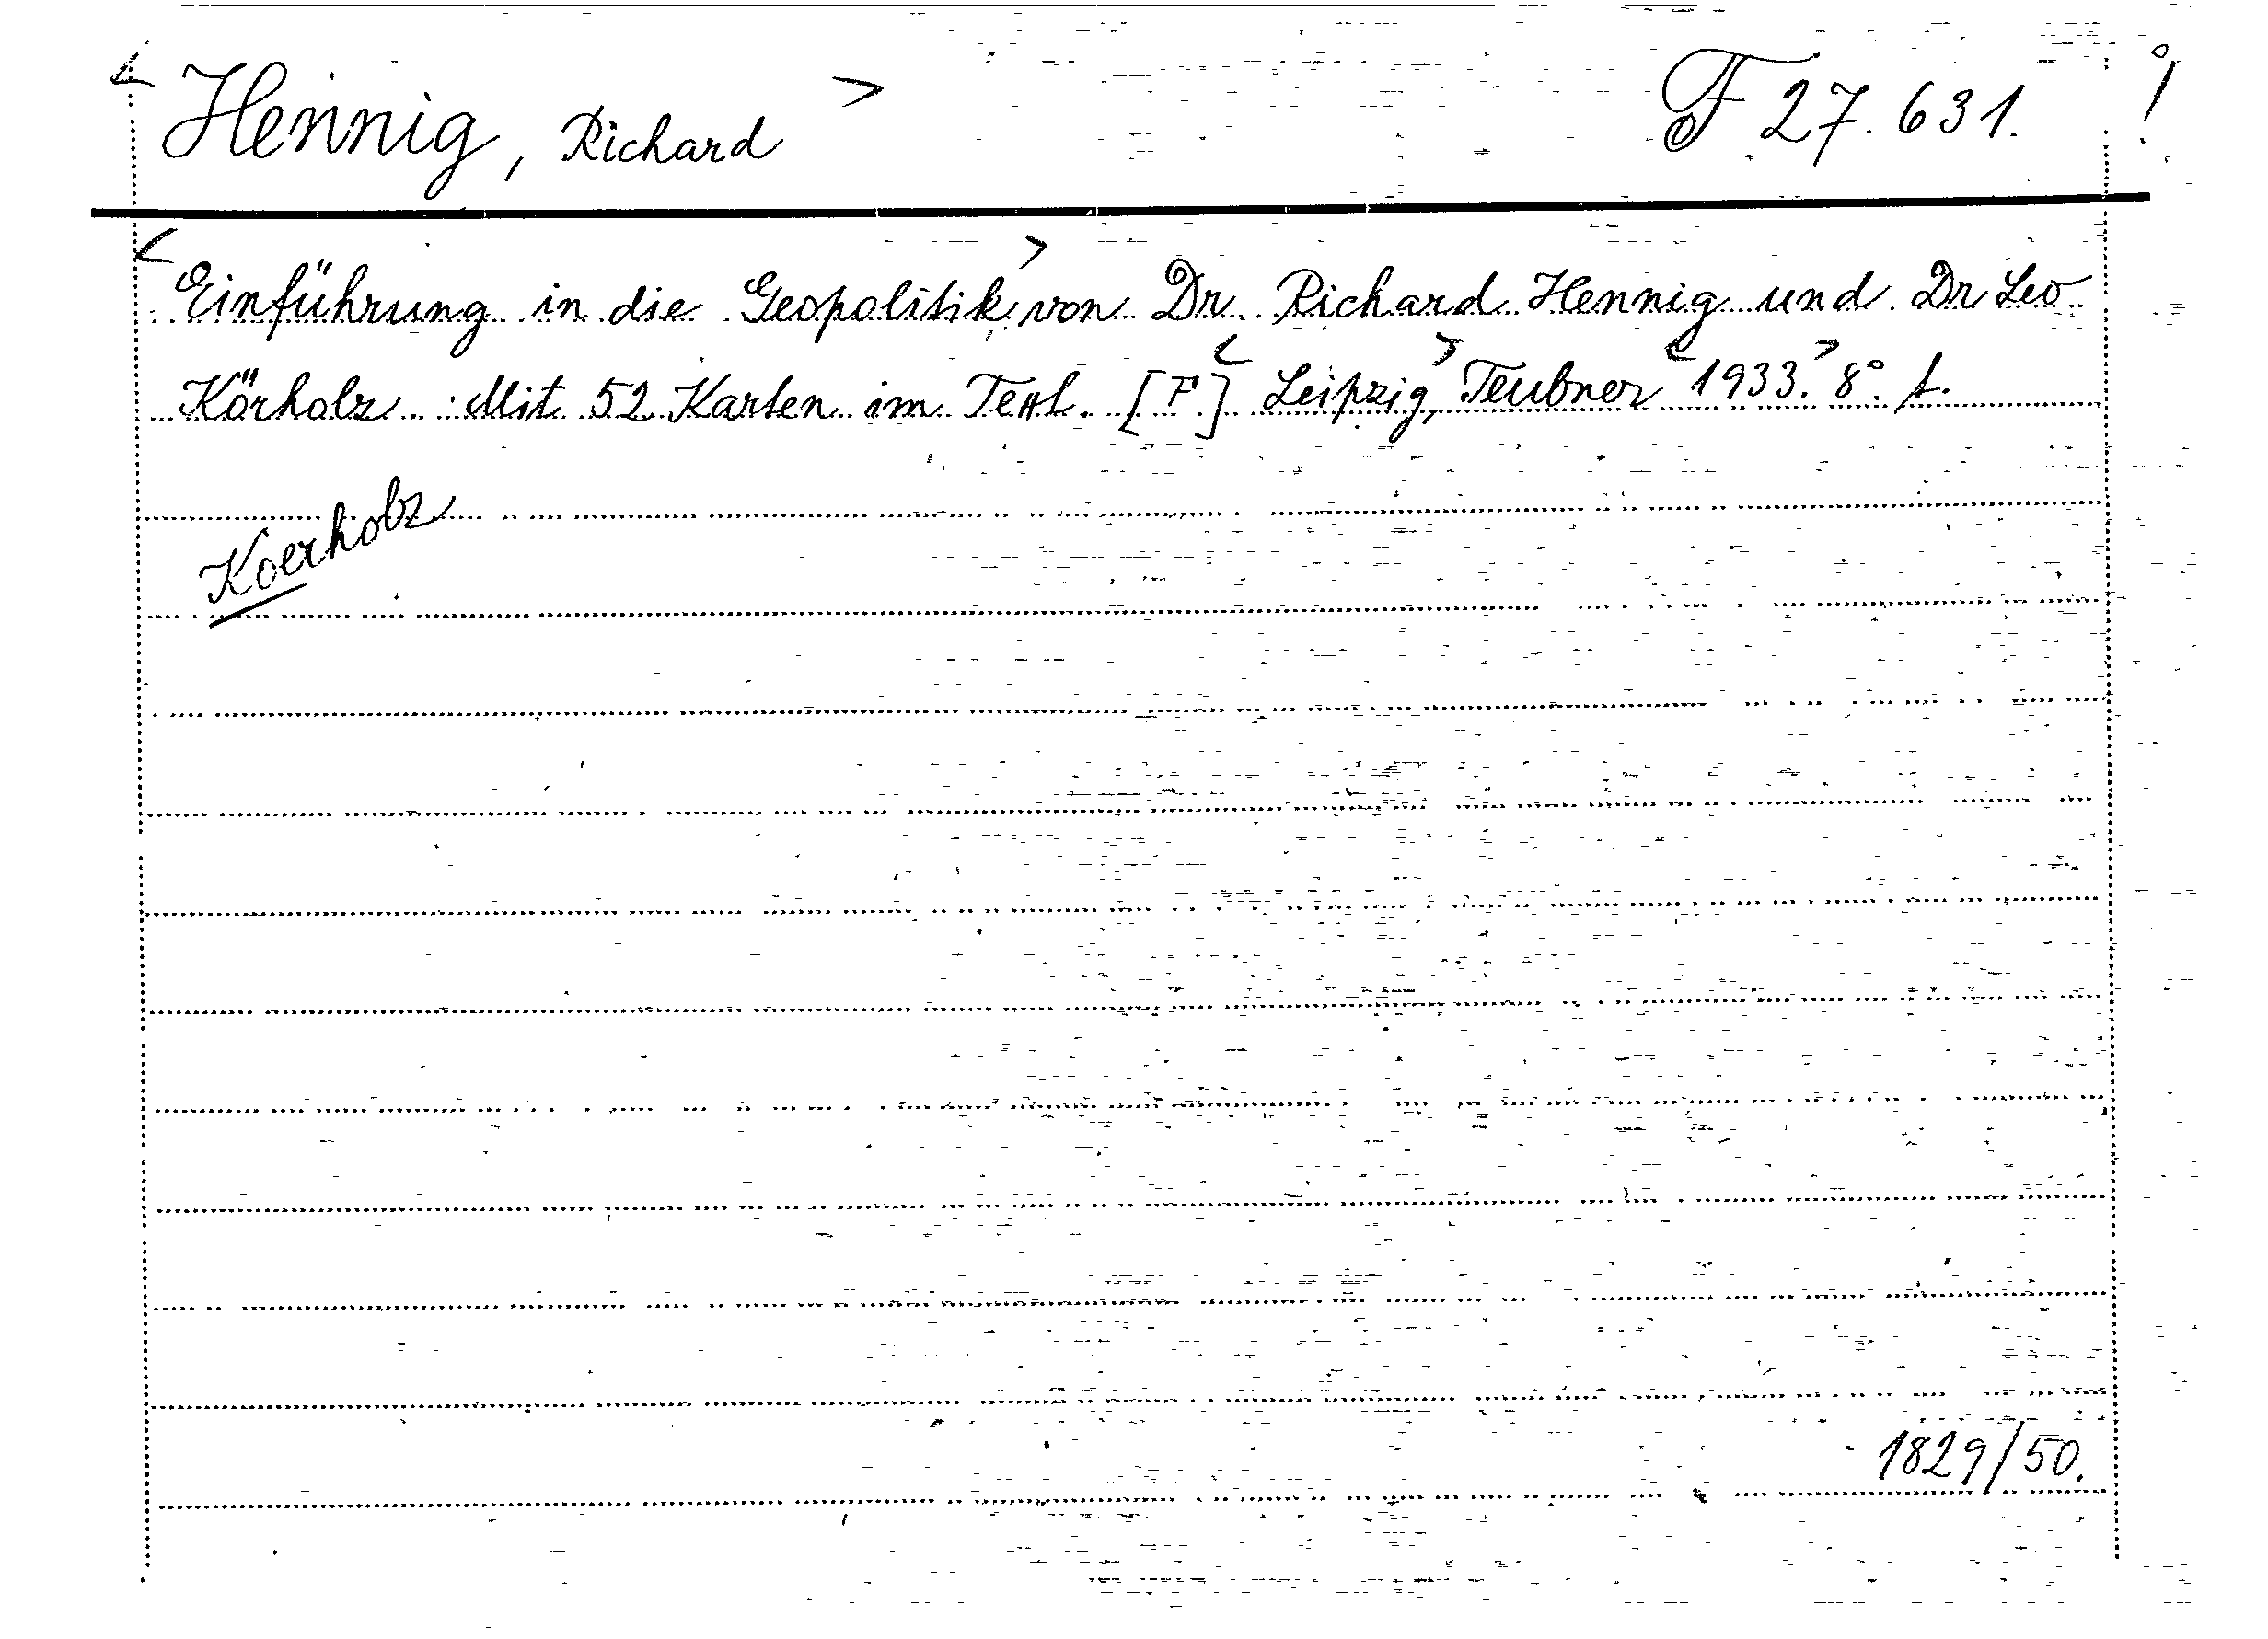 < Hennig, Richard > F 27.631. !
< Einführung in die Geopolitik > von Dr. Richard Hennig und Dr Leo
Körholz. Mit 52 Karten im Text. [F] < Leipzig, > Teubner < 1933. > 8°.
Koerholz
1829/50.